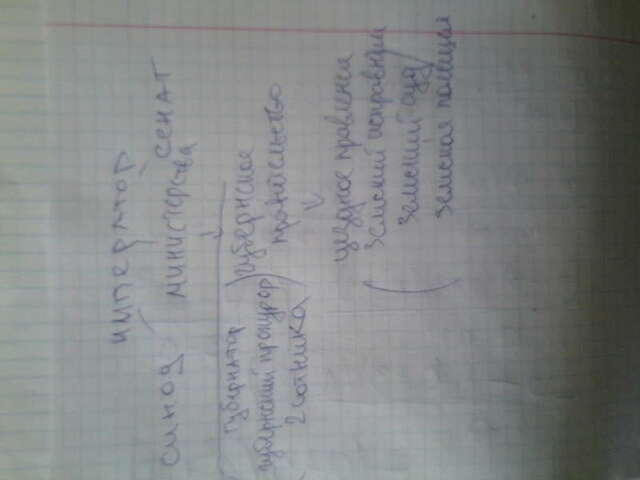 император
синод
министерства
СЕНАТ
губернатор
губернский прокурор
2 сотника
губернское
правительство
уездное правления
земский исправник
земский суд
земская полиция